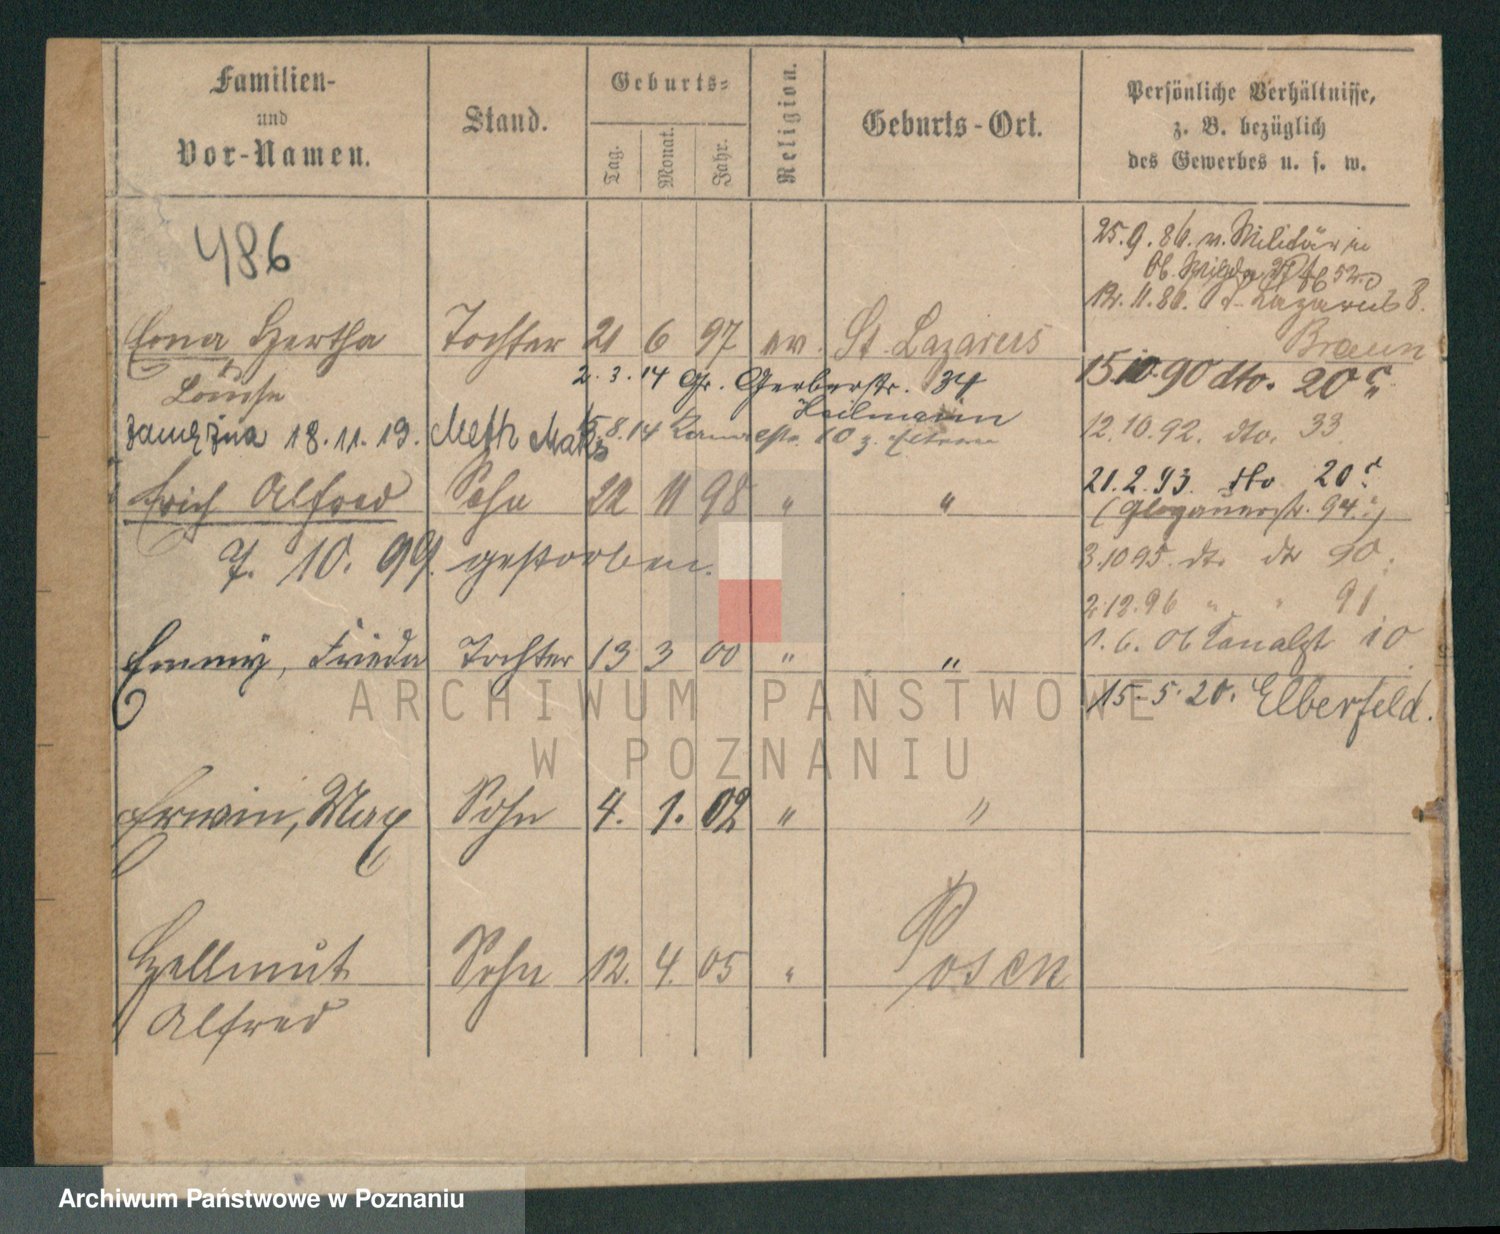 Familien-
und
Vor-Namen.
Stand.
Geburts-
Tag.
Monat.
Jahr.
Religion.
Geburts-Ort.
Persönliche Verhältnisse,
z. B. bezüglich
des Gewerbes u. s. w.
486
25.9.86. v. Militär in
12.11.86. St. Lazarus 8.
Braun
Erna Hertha Tochter 21 6 97 ev. St. Lazarus
Louise
2.3.14 Gr. Gerberstr. 34
Heilmann
15.10.90 dto. 20
zamężna 18.11.19. 15.8.14 10 z.
12.10.92. dto. 33
Erich Alfred Sohn 22 11 98 " "
21.2.93. dto 20
(Glogauerstr. 94.)
7. 10. 99. gestorben.
3.10.95. dto. dto 90.
2.12.96 " " 91
Emmy, Frieda Tochter 13 3 00 " "
1.6.06 Kanalstr 10
15.5.20. Elberfeld.
Erwin, Max Sohn 4. 1. 02 " "
Hellmut Sohn 12. 4. 05 " Posen
Alfred
ARCHIWUM PAŃSTWOWE
W POZNANIU
Archiwum Państwowe w Poznaniu